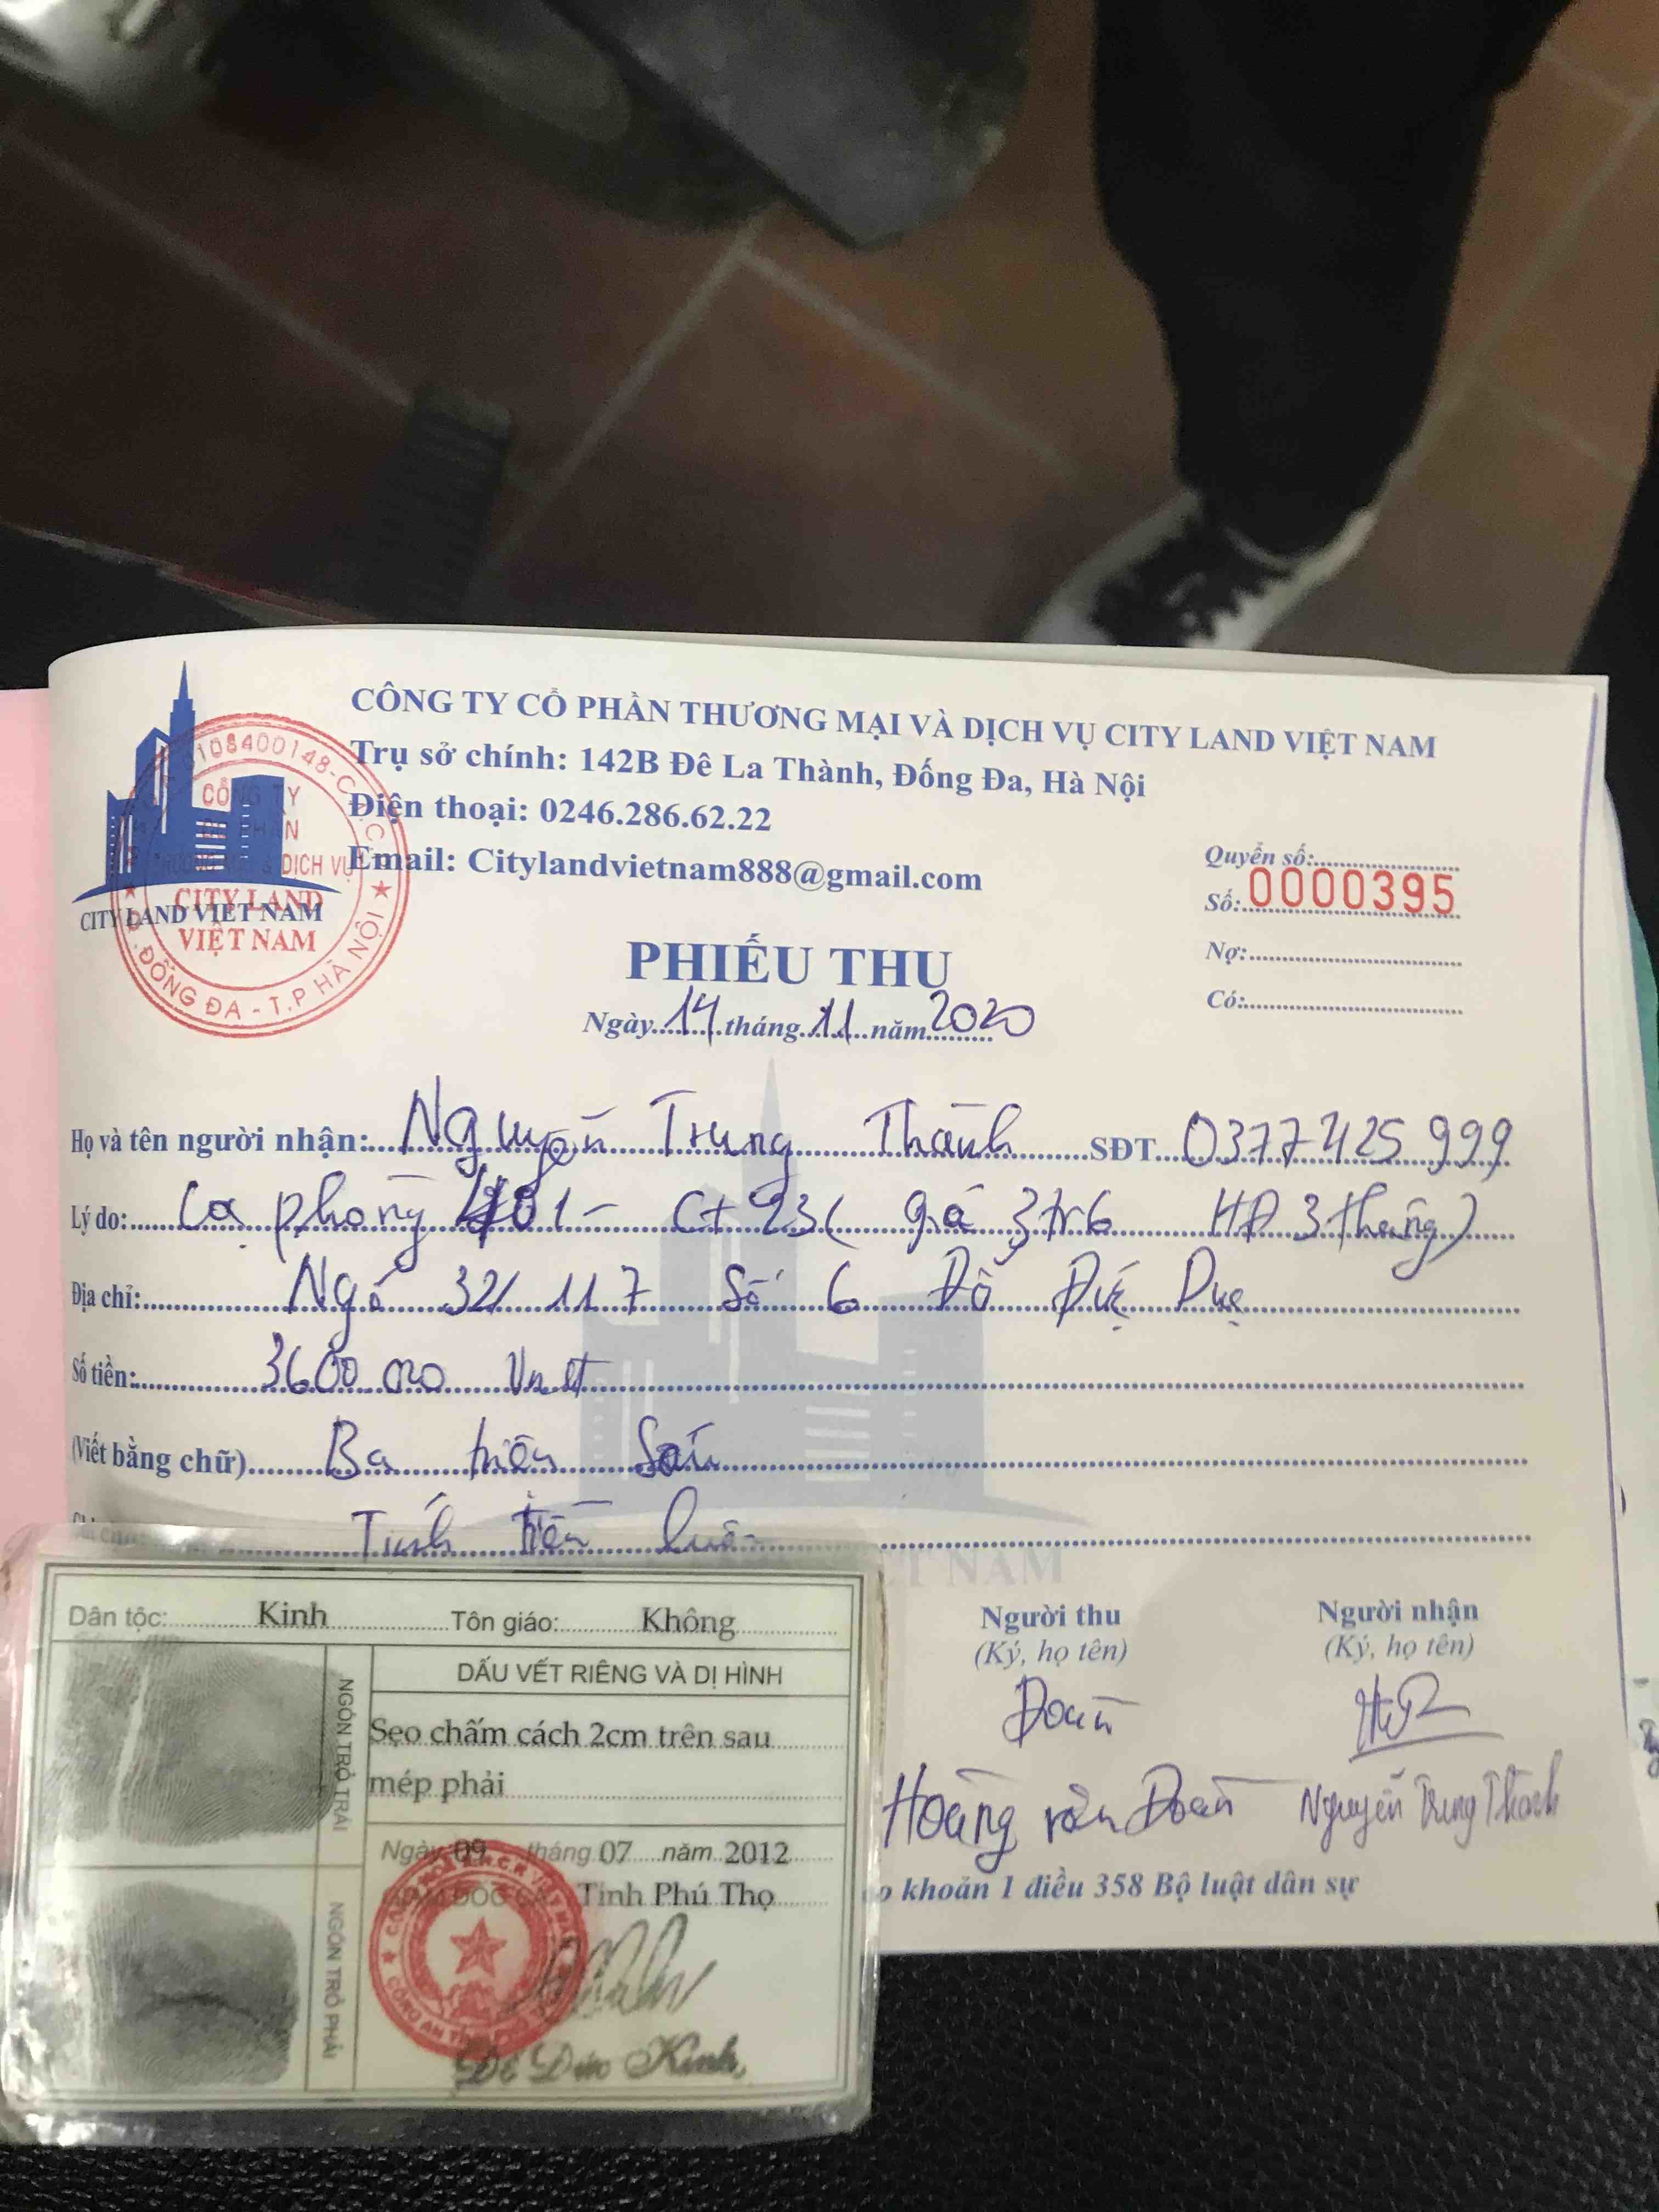 CÔNG TY CỔ PHẦN THƯƠNG MẠI VÀ DỊCH VỤ CITY LAND VIỆT NAM
Trụ sở chính: 142B Đê La Thành, Đống Đa, Hà Nội
Điện thoại: 0246.286.62.22
Email: Citylandvietnam888@gmail.com
CITY LAND VIỆT NAM
CITY LAND
VIỆT NAM
Đ. ĐỐNG ĐA - T.P HÀ NỘI
Quyển số:
Số: 0000395
Nợ:
Có:
PHIẾU THU
Ngày 14 tháng 11 năm 2020
Họ và tên người nhận: Nguyễn Trung Thành SĐT 0377425999
Lý do: Cọ phòng 401 - Ct 23 ( giá 3tr6 HĐ 3 tháng)
Địa chỉ: Ngõ 32/ 117 Số 6 Đỗ Đức Dục
Số tiền: 3600.000 Vnđ
(Viết bằng chữ) Ba triệu Sáu
Tính tiền luôn
Người thu
(Ký, họ tên)
Đoàn
Hoàng văn Đoàn
Người nhận
(Ký, họ tên)
Nguyễn Trung Thành
khoản 1 điều 358 Bộ luật dân sự
Dân tộc: Kinh Tôn giáo: Không
DẤU VẾT RIÊNG VÀ DỊ HÌNH
Sẹo chấm cách 2cm trên sau
mép phải
NGÓN TRỎ TRÁI
NGÓN TRỎ PHẢI
Ngày 09 tháng 07 năm 2012
GIÁM ĐỐC CA Tỉnh Phú Thọ
Kinh